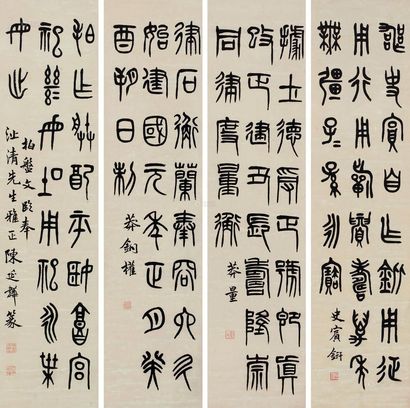 喪史賓自乍鈃用征
用行用蘄眉壽萬年
無疆子孫寶
史賓鈃
據土德受正號即真
改正建丑長壽隆崇
同律度量衡
莽量
律石衡蘭奉容六斤
始建國元年正月癸
酉朔日制
莽銅權
拍乍朕配平姬宮
祀彝毋用祀永枼
毋出
拍盤文臨奉
沚清先生雅正 陳延韡篆